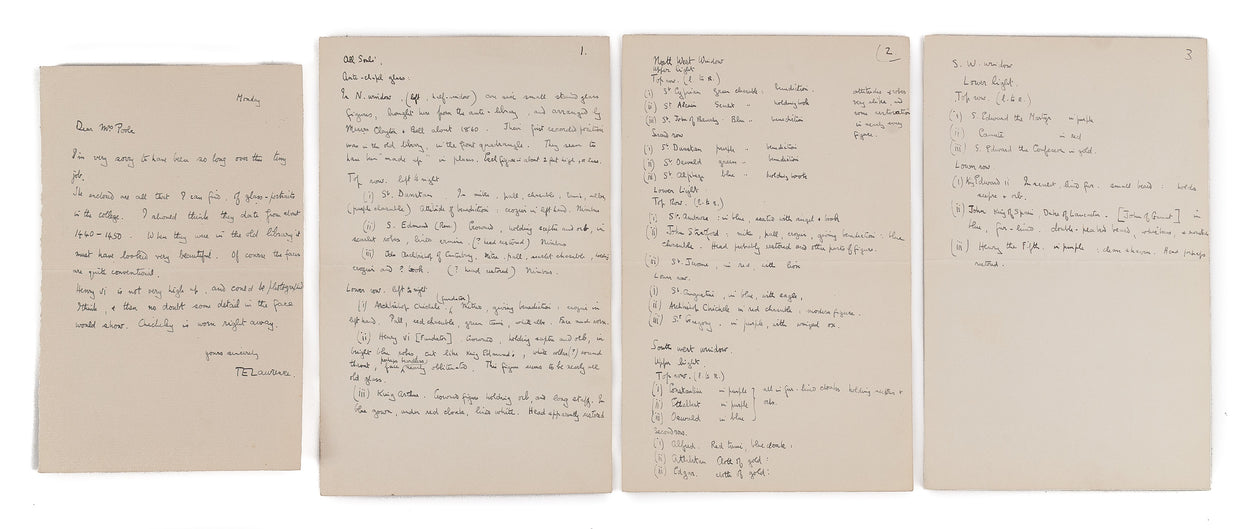 Monday
Dear Mrs Poole
I'm very sorry to have been so long over this tiny
job.
The enclosed are all that I can find, of glass-portraits
in the college. I should think they date from about
1440-1450. When they were in the old library it
must have looked very beautiful. Of course the faces
are quite conventional.
Henry VI is not very high up, and could be photographed
I think, & then no doubt some detail in the face
would show. Chichley is worn right away.
yours sincerely
TELawrence.
1.
All Souls',
Ante-chapel glass:
In N. window. (left, half-window) are six small stained glass
figures, brought here from the ante-library, and arranged by
Messrs Clayton & Bell about 1860. Their first recorded position
was in the old library, in the front quadrangle. They seem to
have been "made up" in places. Each figure is about 2 feet high, or less.
Top row. left to right
(i) St. Dunstan. In mitre, pall, chasuble,
(purple chasuble) Attitude of benediction: crozier in left hand. Nimbus
(ii) S. Edmund (Rex) Crowned, holding sceptre and orb, in
scarlet robes, lined ermine. (? head restored) Nimbus
(iii) Archbishop of Canterbury. Mitre, pall, scarlet chasuble, holding
crozier and ? book. (? head restored) Nimbus.
Lower row. left to right
(i) Archbishop Chichele. (fundator) Mitre, giving benediction. crozier in
left hand. Pall, red chasuble, green tunic, white alb. Face much worn.
(ii) Henry VI [Fundator]. Crowned, holding sceptre and orb, in
bright blue robes, cut like King Edmund's, white collar (?) round
throat, perhaps beardless, face nearly obliterated. This figure seems to be nearly all
old glass.
(iii) King Arthur. Crowned figure holding orb, and long staff. In
blue gown, under red cloak, lined white. Head apparently restored
2.
North West Window
Upper light
Top row. (L. to R.)
(i) St Cyprian Green chasuble: benediction.
(ii) St Alcuin Scarlet " holding book
(iii) St. John of Beverley. Blue " benediction
attitudes & robes
very alike, and
some restoration
in nearly every
figure.
Second row
(i) St. Dunstan purple " benediction
(ii) St. Oswald green " benediction
(iii) St. Alphege blue " holding book
Lower Light.
Top Row. (L. to R.)
(i) St. Andrew: in blue, seated with angel & book
(ii) John Stratford: mitre, pall, crozier, giving benediction. blue
chasuble. Head probably restored and other parts of figure.
(iii) St. Jerome, in red, with lion
Lower row.
(i) St. Augustine, in blue, with eagle,
(ii) Archbishop Chichele in red chasuble, modern figure.
(iii) St. Gregory. in purple, with winged ox.
South west window.
Upper light.
Top row. (L to R.)
(i) Constantine in purple
(ii) Ethelbert in purple
(iii) Oswald in blue
all in fur-lined cloaks holding sceptres &
orbs.
Second row.
(i) Alfred. Red tunic, blue cloak:
(ii) Athelstan Cloth of gold:
(iii) Edgar. cloth of gold:
3
S. W. window
Lower light.
Top row. (L to R.)
(i) S. Edward the Martyr in purple
(ii) Canute in red
(iii) S. Edward the Confessor in gold.
Lower row
(i) King Edward II In scarlet, lined fur. small beard: holds
sceptre & orb.
(ii) John King of Spain, Duke of Lancaster. [John of Gaunt] in
blue, fur-lined. double-peaked beard, whiskers & moustache
(iii) Henry the Fifth. in purple. clean shaven. Head perhaps
restored.